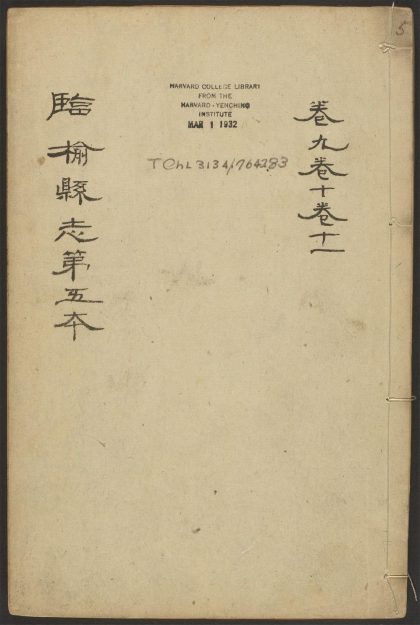 5
卷九卷十卷十一
HARVARD COLLEGE LIBRARY
FROM THE
HARVARD-YENCHING
INSTITUTE
MAR 1 1932
TChL 3134/764283
臨榆縣志第五本